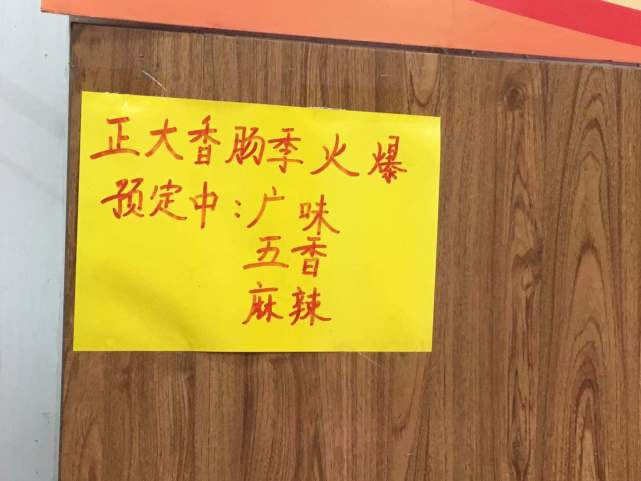 正大香肠季火爆
预定中:广味
五香
麻辣